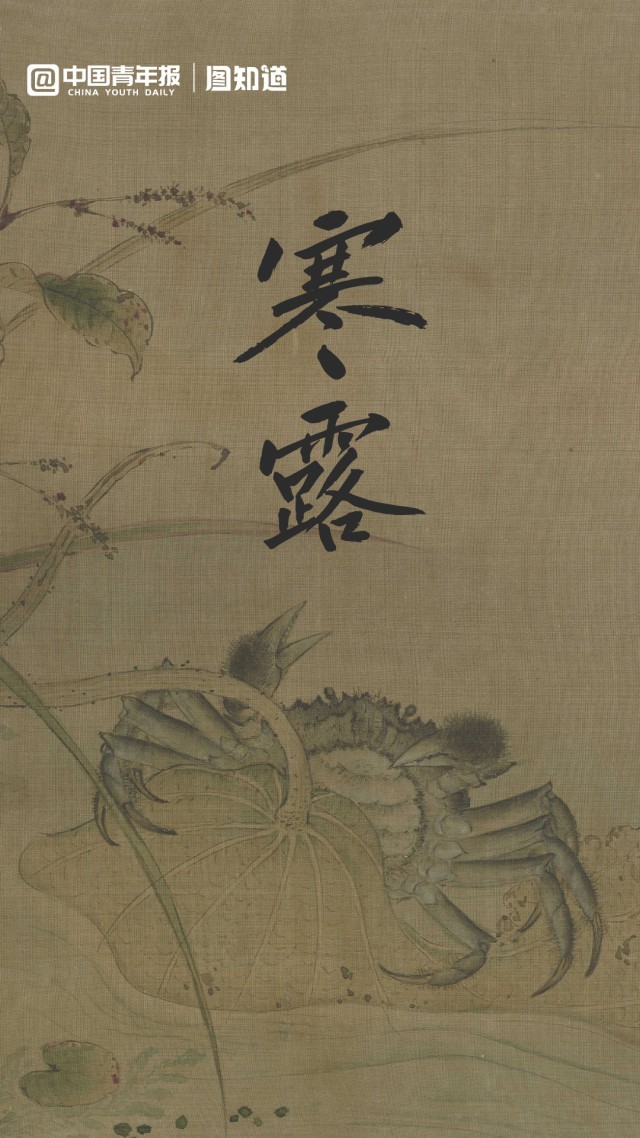 @中国青年报 图知道
CHINA YOUTH DAILY
寒露